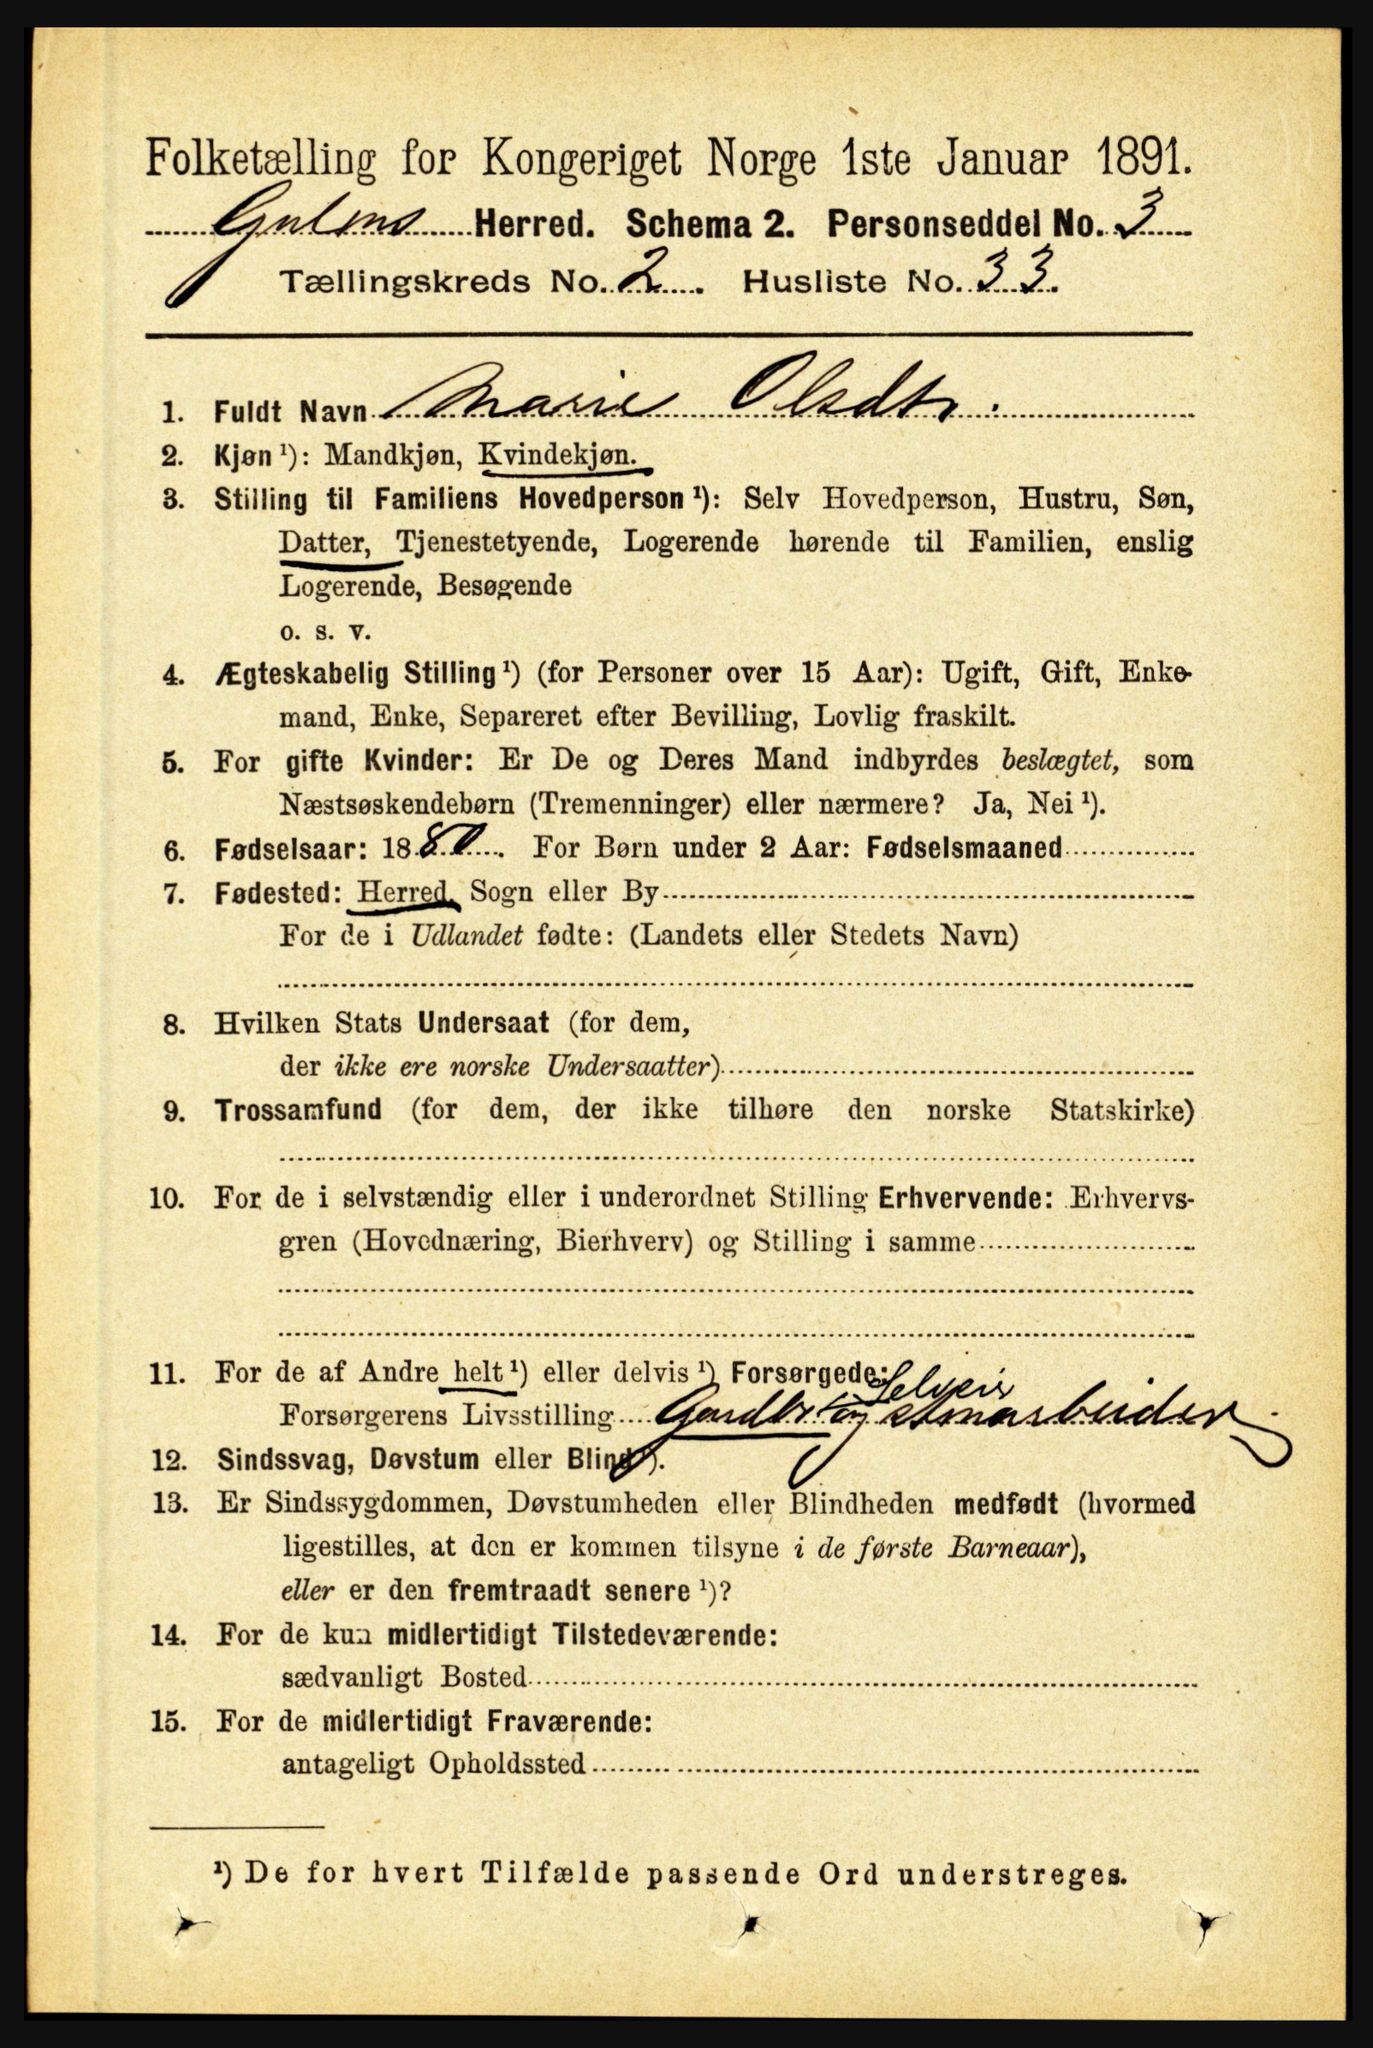 Folketælling for Kongeriget Norge 1ste Januar 1891.
Gulens Herred. Schema 2. Personseddel No. 3
Tællingskreds No. 2. Husliste No. 33.
1. Fuldt Navn Marie Olsdtr.
2. Kjøn ¹): Mandkjøn, Kvindekjøn.
3. Stilling til Familiens Hovedperson ¹): Selv Hovedperson, Hustru, Søn,
Datter, Tjenestetyende, Logerende hørende til Familien, enslig
Logerende, Besøgende
o. s. v.
4. Ægteskabelig Stilling ¹) (for Personer over 15 Aar): Ugift, Gift, Enke-
mand, Enke, Separeret efter Bevilling, Lovlig fraskilt.
5. For gifte Kvinder: Er De og Deres Mand indbyrdes beslægtet, som
Næstsøskendebørn (Tremenninger) eller nærmere? Ja, Nei ¹).
6. Fødselsaar: 1880. For Børn under 2 Aar: Fødselsmaaned
7. Fødested: Herred, Sogn eller By
For de i Udlandet fødte: (Landets eller Stedets Navn)
8. Hvilken Stats Undersaat (for dem,
der ikke ere norske Undersaatter)
9. Trossamfund (for dem, der ikke tilhøre den norske Statskirke)
10. For de i selvstændig eller i underordnet Stilling Erhvervende: Erhvervs-
gren (Hovednæring, Bierhverv) og Stilling i samme
11. For de af Andre helt ¹) eller delvis ¹) Forsørgede: Selveier
Forsørgerens Livsstilling Gardbr og
12. Sindssvag, Døvstum eller Blind ¹).
13. Er Sindssygdommen, Døvstumheden eller Blindheden medfødt (hvormed
ligestilles, at den er kommen tilsyne i de første Barneaar),
eller er den fremtraadt senere ¹)?
14. For de kun midlertidigt Tilstedeværende:
sædvanligt Bosted
15. For de midlertidigt Fraværende:
antageligt Opholdssted
¹) De for hvert Tilfælde passende Ord understreges.